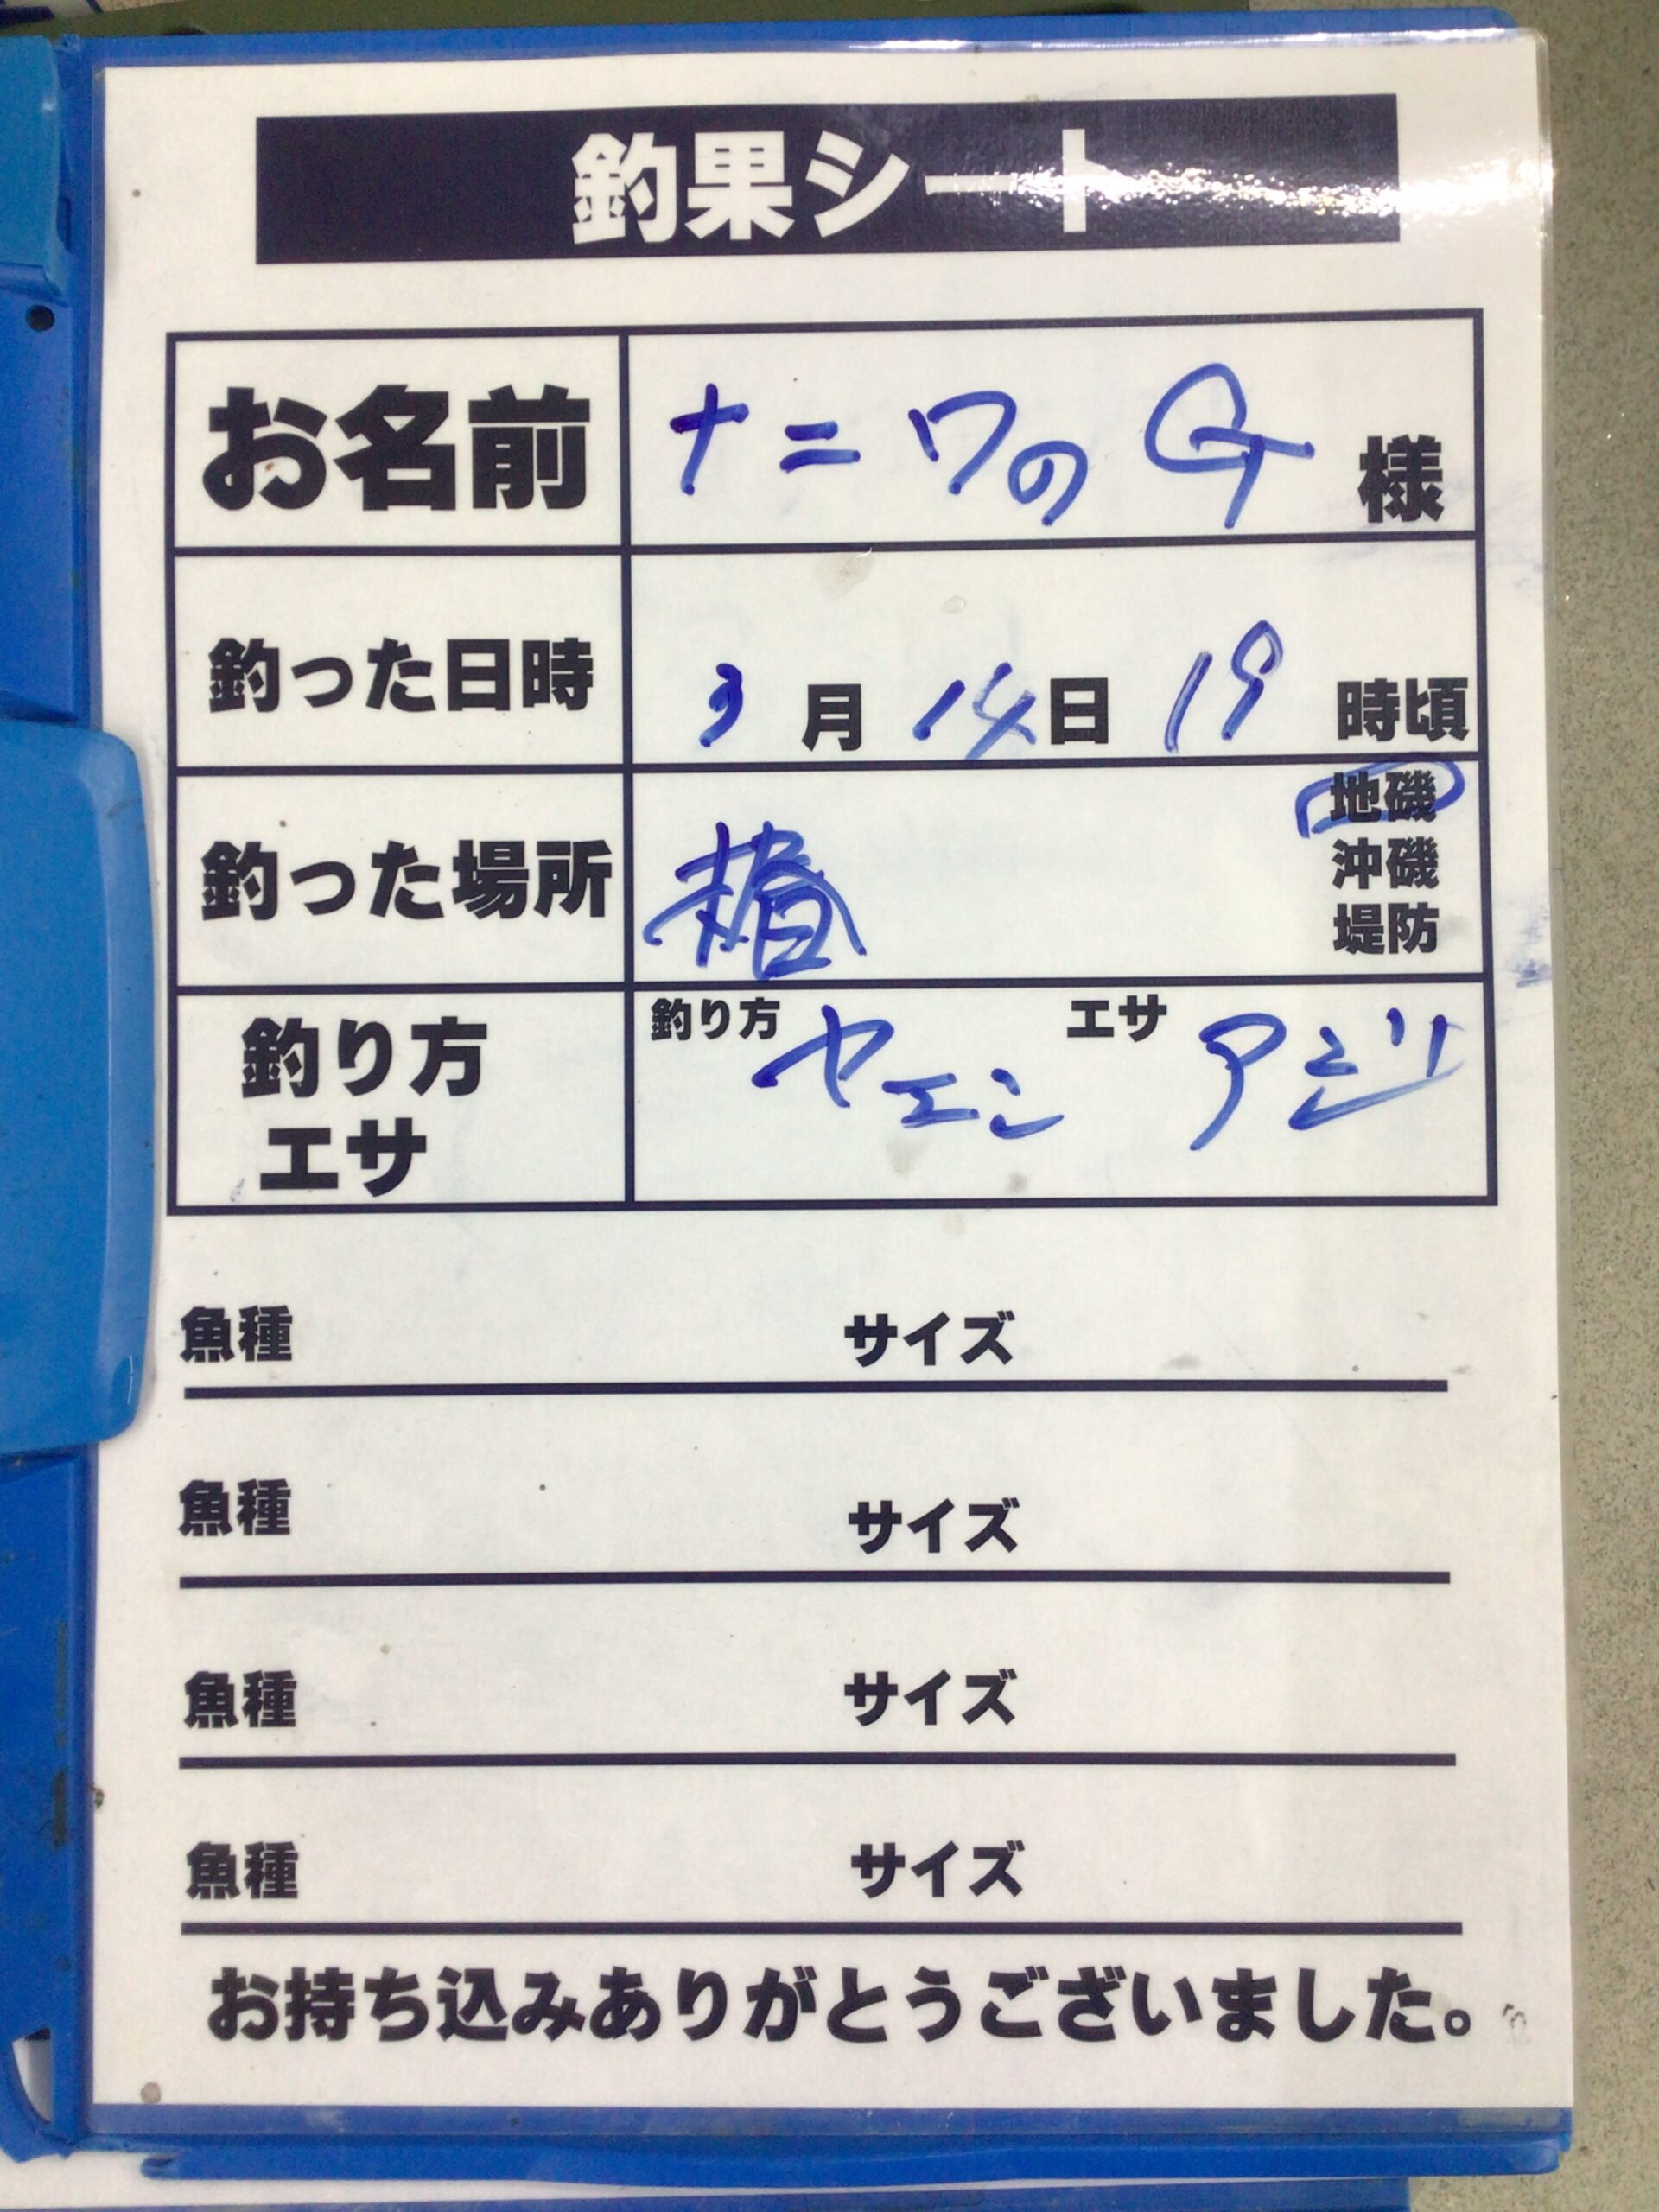 釣果シート
お名前 ナニワのG 様
釣った日時 3月14日19時頃
釣った場所 椿 地磯
沖磯
堤防
釣り方 エサ 釣り方 ヤエン エサ アジ
魚種 サイズ
魚種 サイズ
魚種 サイズ
魚種 サイズ
お持ち込みありがとうございました。